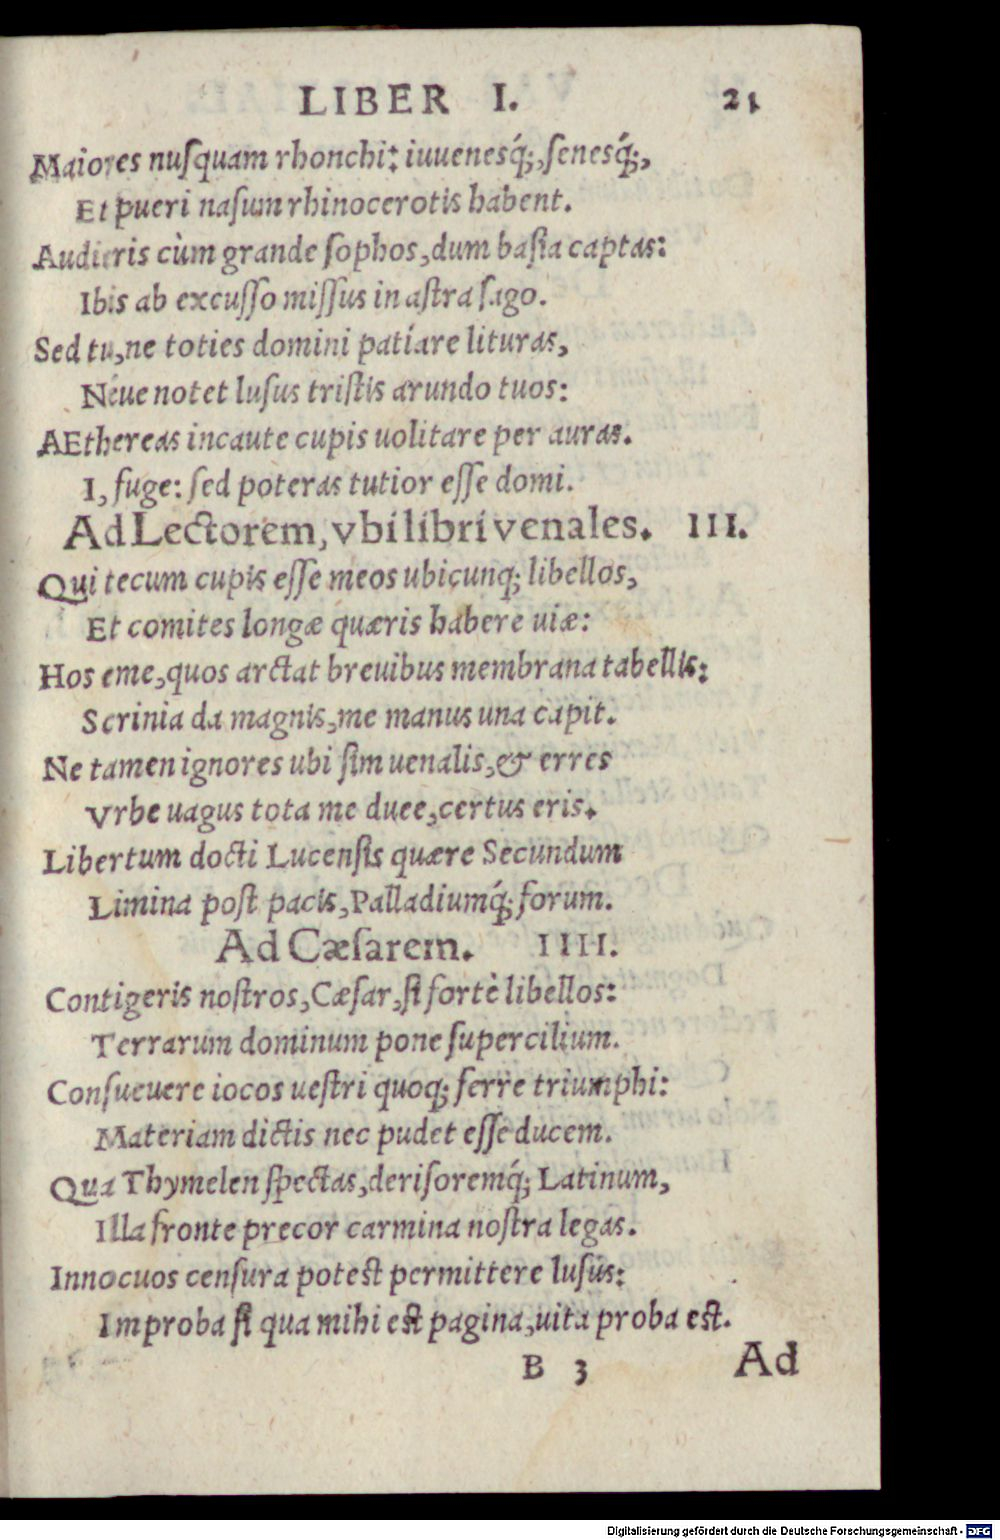 LIBER I. 21
Maiores nuſquam rhonchi: iuueneſq́;, ſeneſq́;,
Et pueri naſum rhinocerotis habent.
Audieris cùm grande ſophos, dum baſia captas:
Ibis ab excuſſo miſſus in aſtra ſago.
Sed tu, ne toties domini patiare lituras,
Néue notet luſus triſtis arundo tuos:
AEthereas incaute cupis uolitare per auras.
I, fuge: ſed poteras tutior eſſe domi.
Ad Lectorem, vbi libri venales. III.
Qui tecum cupis eſſe meos ubicunq; libellos,
Et comites longæ quæris habere uiæ:
Hos eme, quos arctat breuibus membrana tabellis:
Scrinia da magnis, me manus una capit.
Ne tamen ignores ubi ſim uenalis, & erres
Vrbe uagus tota me duce, certus eris.
Libertum docti Lucenſis quære Secundum
Limina poſt pacis, Palladiumq́; forum.
Ad Cæſarem. IIII.
Contigeris noſtros, Cæſar, ſi fortè libellos:
Terrarum dominum pone ſupercilium.
Conſueuere iocos ueſtri quoq; ferre triumphi:
Materiam dictis nec pudet eſſe ducem.
Qua Thymelen ſpectas, deriſoremq́; Latinum,
Illa fronte precor carmina noſtra legas.
Innocuos cenſura poteſt permittere luſus:
Improba ſi qua mihi eſt pagina, uita proba eſt.
B 3 Ad
Digitalisierung gefördert durch die Deutsche Forschungsgemeinschaft - DFG